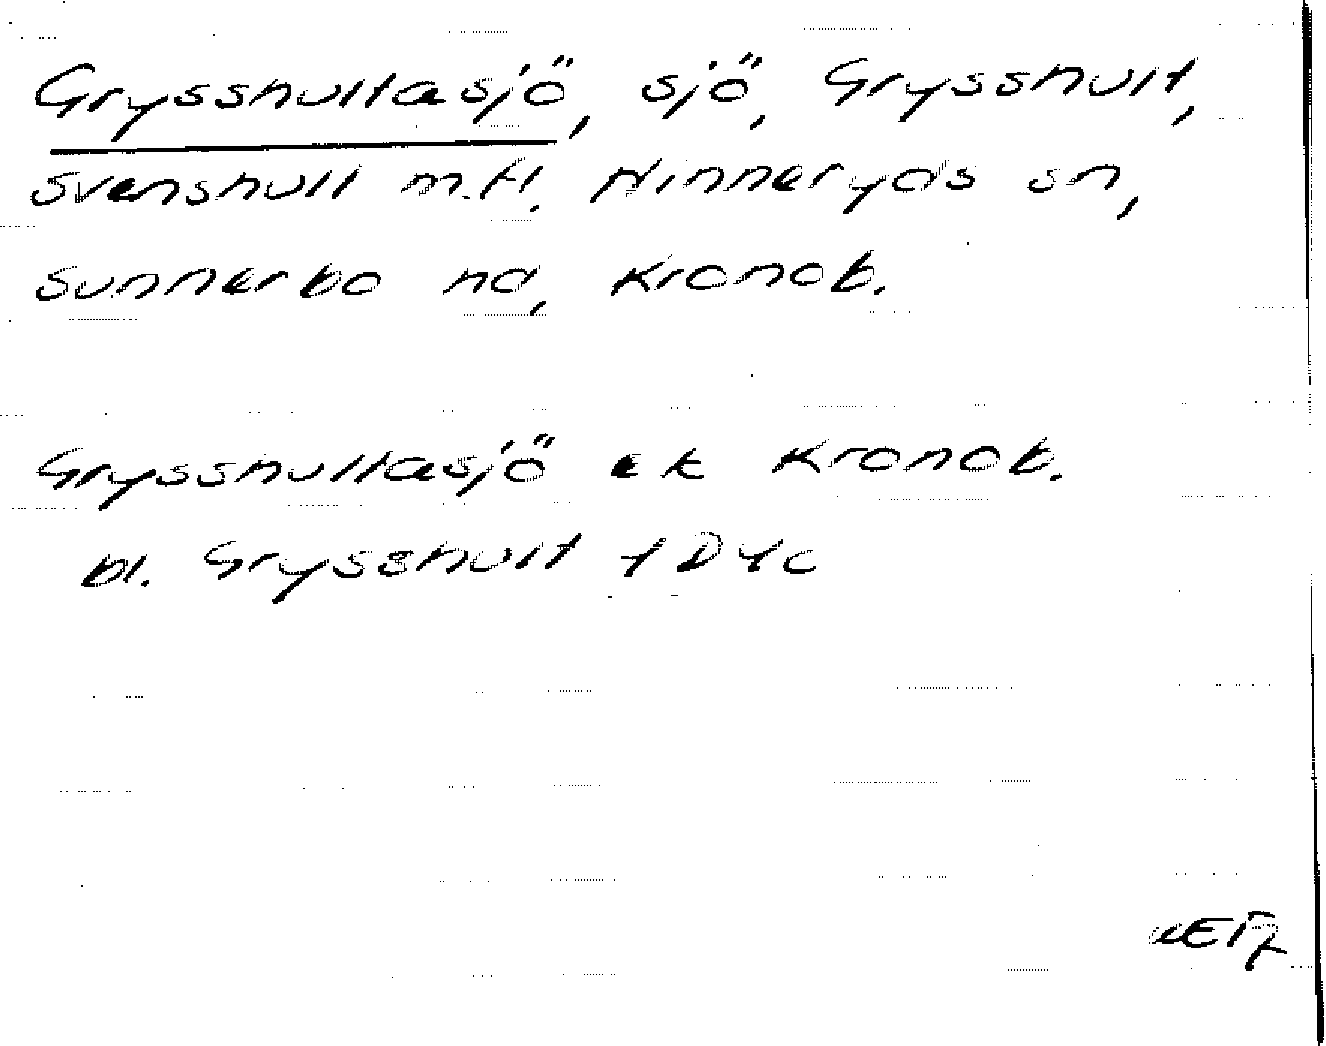 Grysshultasjö, sjö, Grysshult,
Svenshult m.fl. Hinneryds sn,
Sunnerbo hd, Kronob.
Grysshultasjö ek Kronob.
bl. Grysshult 4D4c